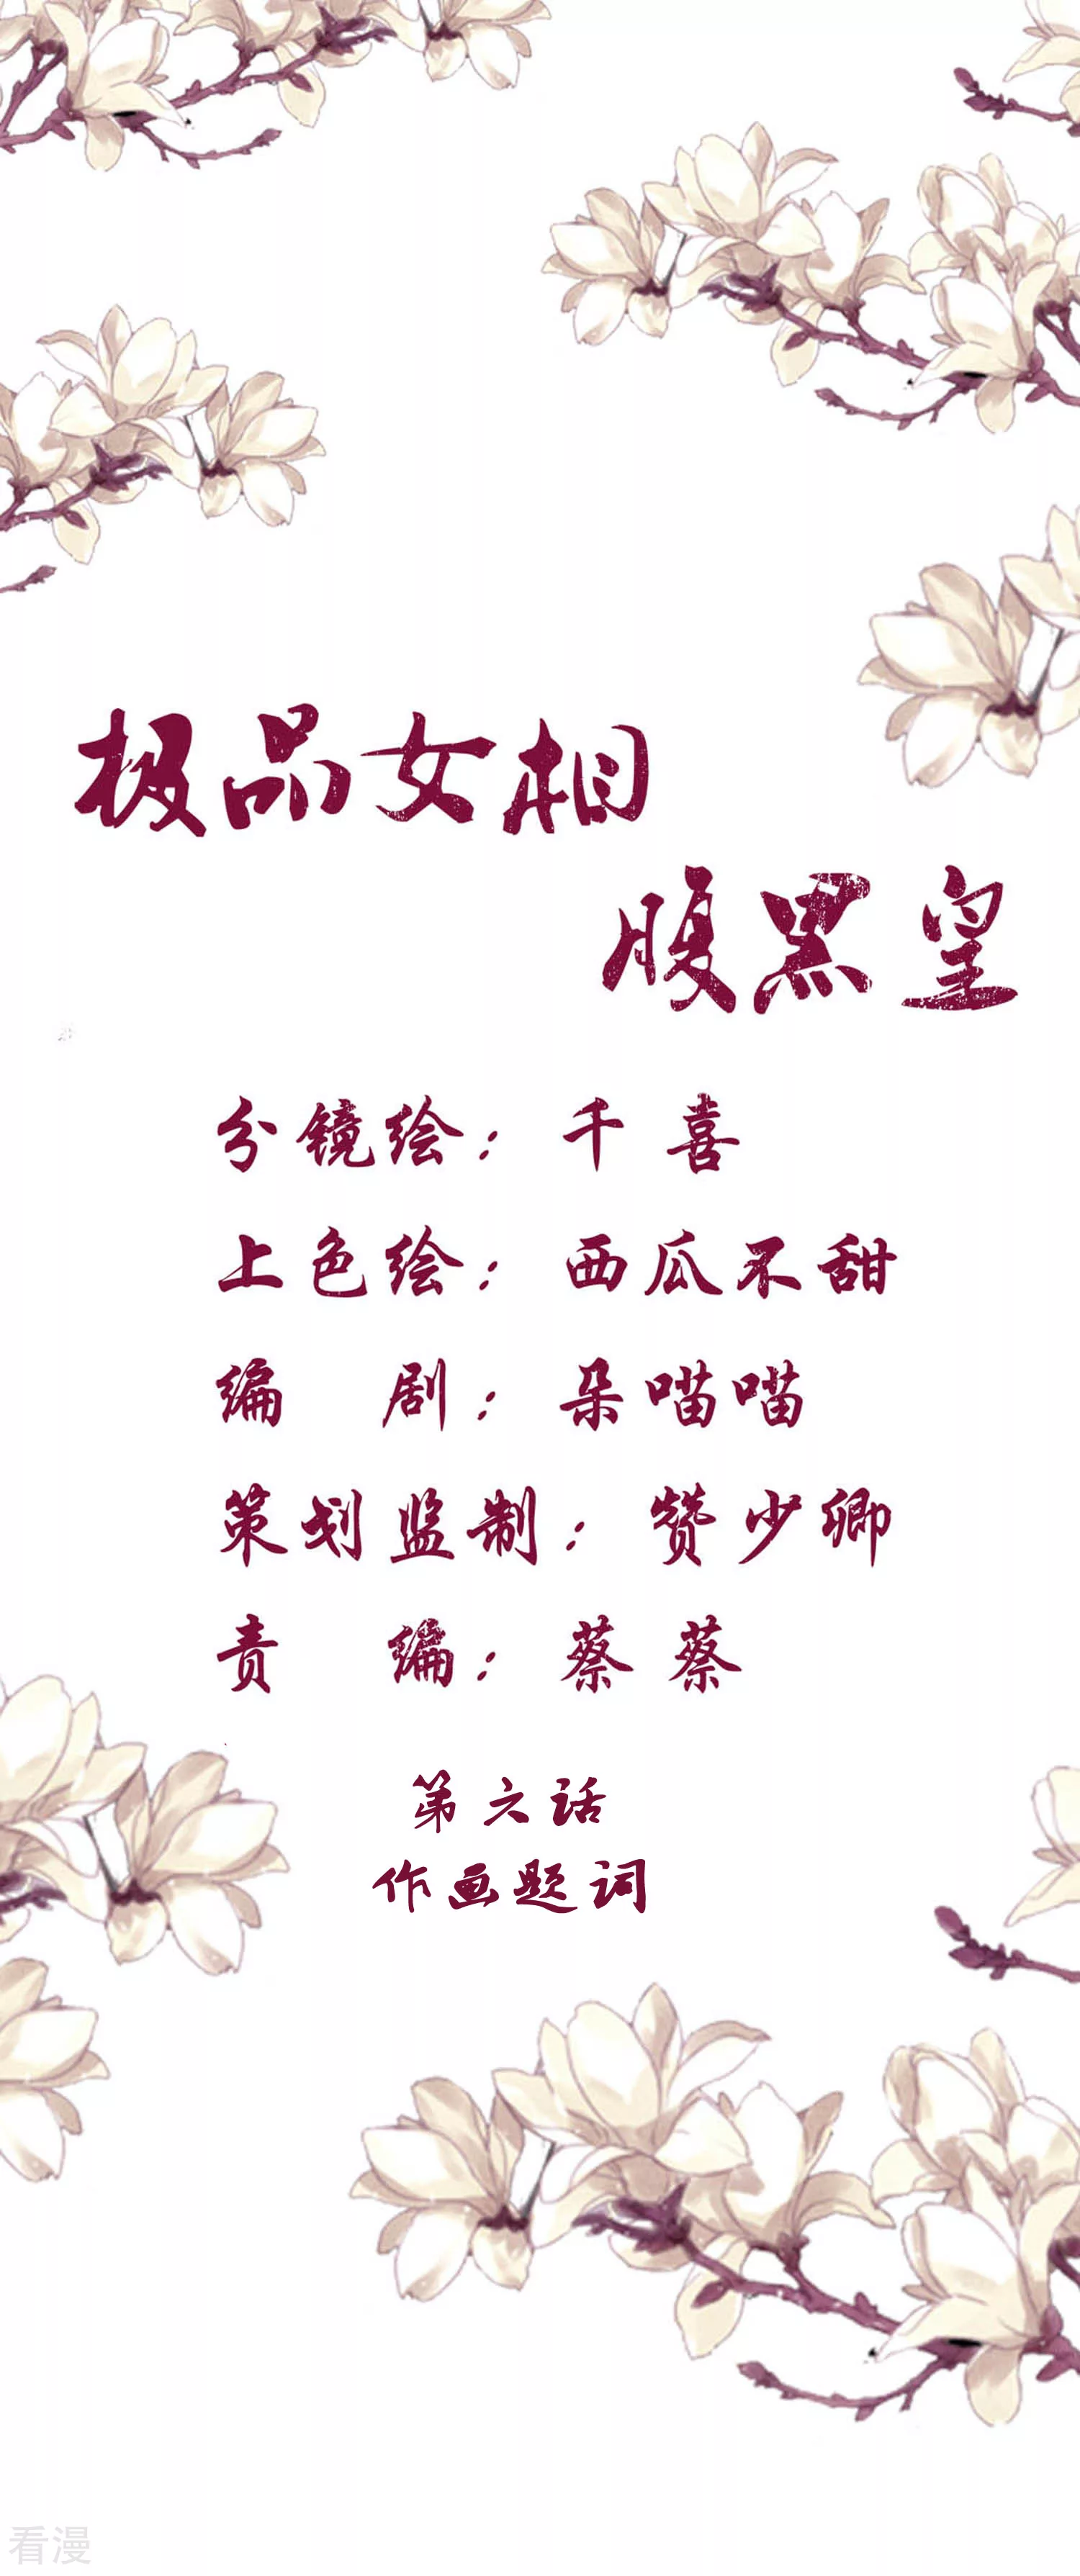 极品女相
腹黑皇
分镜绘：千喜
上色绘：西瓜不甜
编 剧：朵喵喵
策划监制：赞少卿
责 编：蔡蔡
第六话
作画题词
看漫